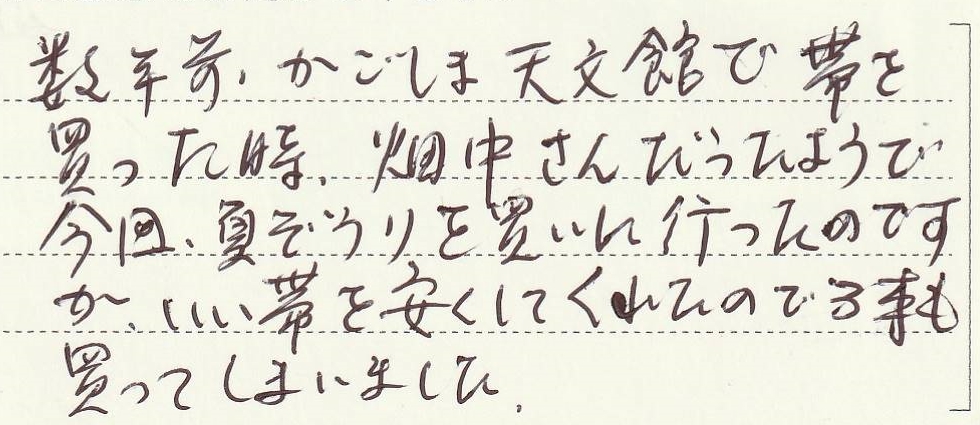 数年前、かごしま天文館で帯を
買った時、畑中さんだったようで
今回、夏ぞうりを買いに行ったのです
が、いい帯を安くしてくれたので3本も
買ってしまいました。